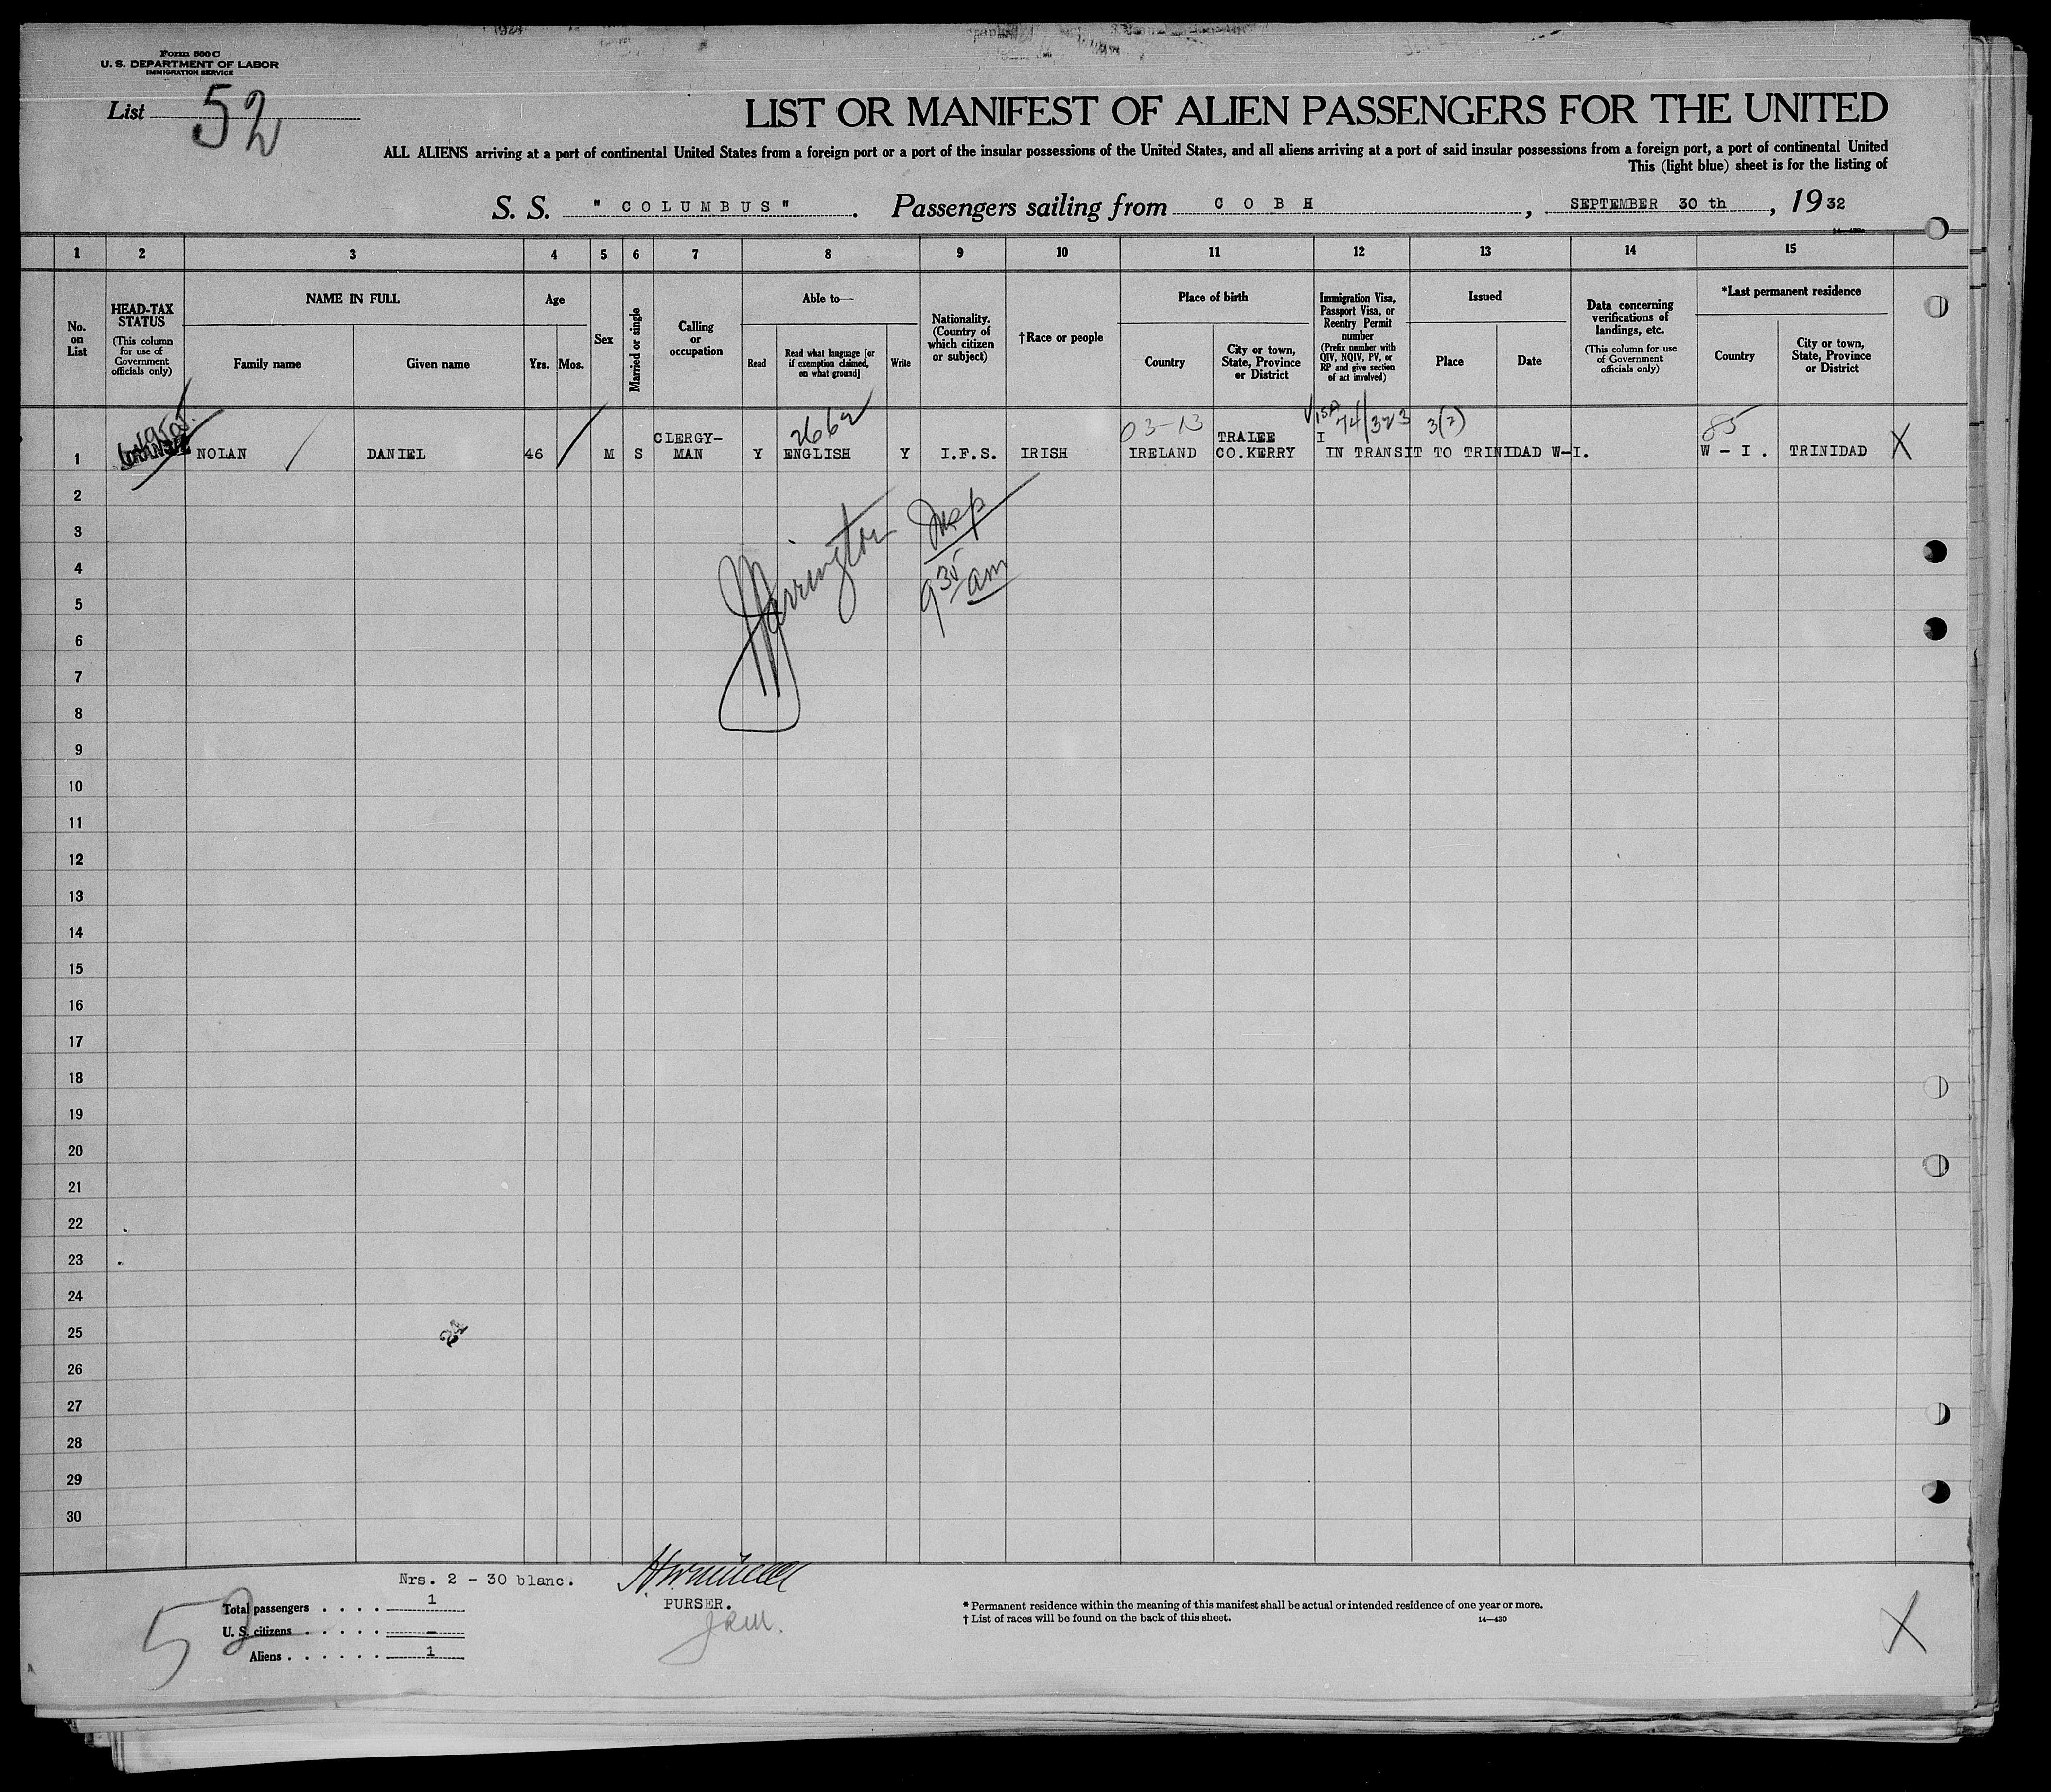 Form 500 C
U. S. DEPARTMENT OF LABOR
IMMIGRATION SERVICE
List 52
LIST OR MANIFEST OF ALIEN PASSENGERS FOR THE UNITED
ALL ALIENS arriving at a port of continental United States from a foreign port or a port of the insular possessions of the United States, and all aliens arriving at a port of said insular possessions from a foreign port, a port of continental United
This (light blue) sheet is for the listing of
S. S. " COLUMBUS " . Passengers sailing from COBH , SEPTEMBER 30 th , 19 32
1 2 3 4 5 6 7 8 9 10 11 12 13 14 15
No. on List
HEAD-TAX STATUS
(This column for use of Government officials only)
NAME IN FULL
Family name
Given name
Age
Yrs. Mos.
Sex
Married or single
Calling or occupation
Able to—
Read
Read what language [or if exemption claimed, on what ground]
Write
Nationality. (Country of which citizen or subject)
†Race or people
Place of birth
Country
City or town, State, Province or District
Immigration Visa, Passport Visa, or Reentry Permit number
(Prefix number with QIV, NQIV, PV, or RP and give section of act involved)
Issued
Place
Date
Data concerning verifications of landings, etc.
(This column for use of Government officials only)
*Last permanent residence
Country
City or town, State, Province or District
2662 03-13 VISA 74/323 3(2) 85
1 NOLAN DANIEL 46 M S CLERGY-MAN Y ENGLISH Y I.F.S. IRISH IRELAND TRALEE CO.KERRY I IN TRANSIT TO TRINIDAD W-I. W - I . TRINIDAD X
Harrington Insp
9 30 am
2
3
4
5
6
7
8
9
10
11
12
13
14
15
16
17
18
19
20
21
22
23
24
25
26
27
28
29
30
Nrs. 2 - 30 blanc.
Total passengers . . . . 1
U. S. citizens . . . . . –
Aliens . . . . . . 1
52
PURSER.
* Permanent residence within the meaning of this manifest shall be actual or intended residence of one year or more.
† List of races will be found on the back of this sheet.
14—430
X